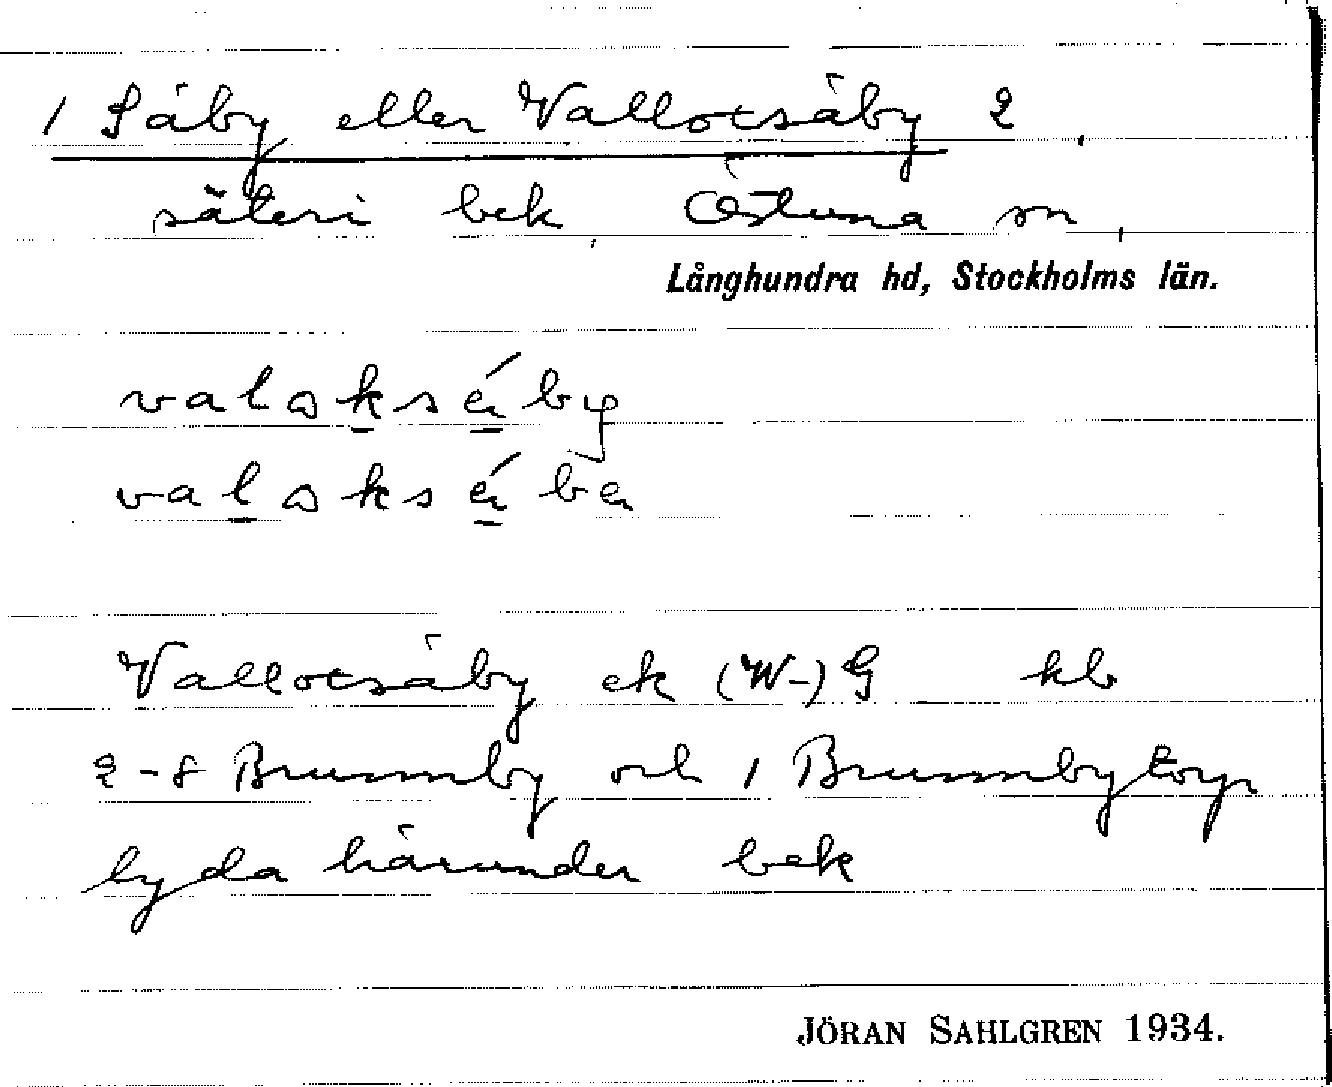 1 Säby eller Valloxsäby 2
säteri bek Östuna sn
Långhundra hd, Stockholms län.
valoksǽby
valoksǽbæ
Valloxsäby ek (W-) G kb
2-8 Brunnby och 1 Brunnbytorp
lyda härunder bek
JÖRAN SAHLGREN 1934.